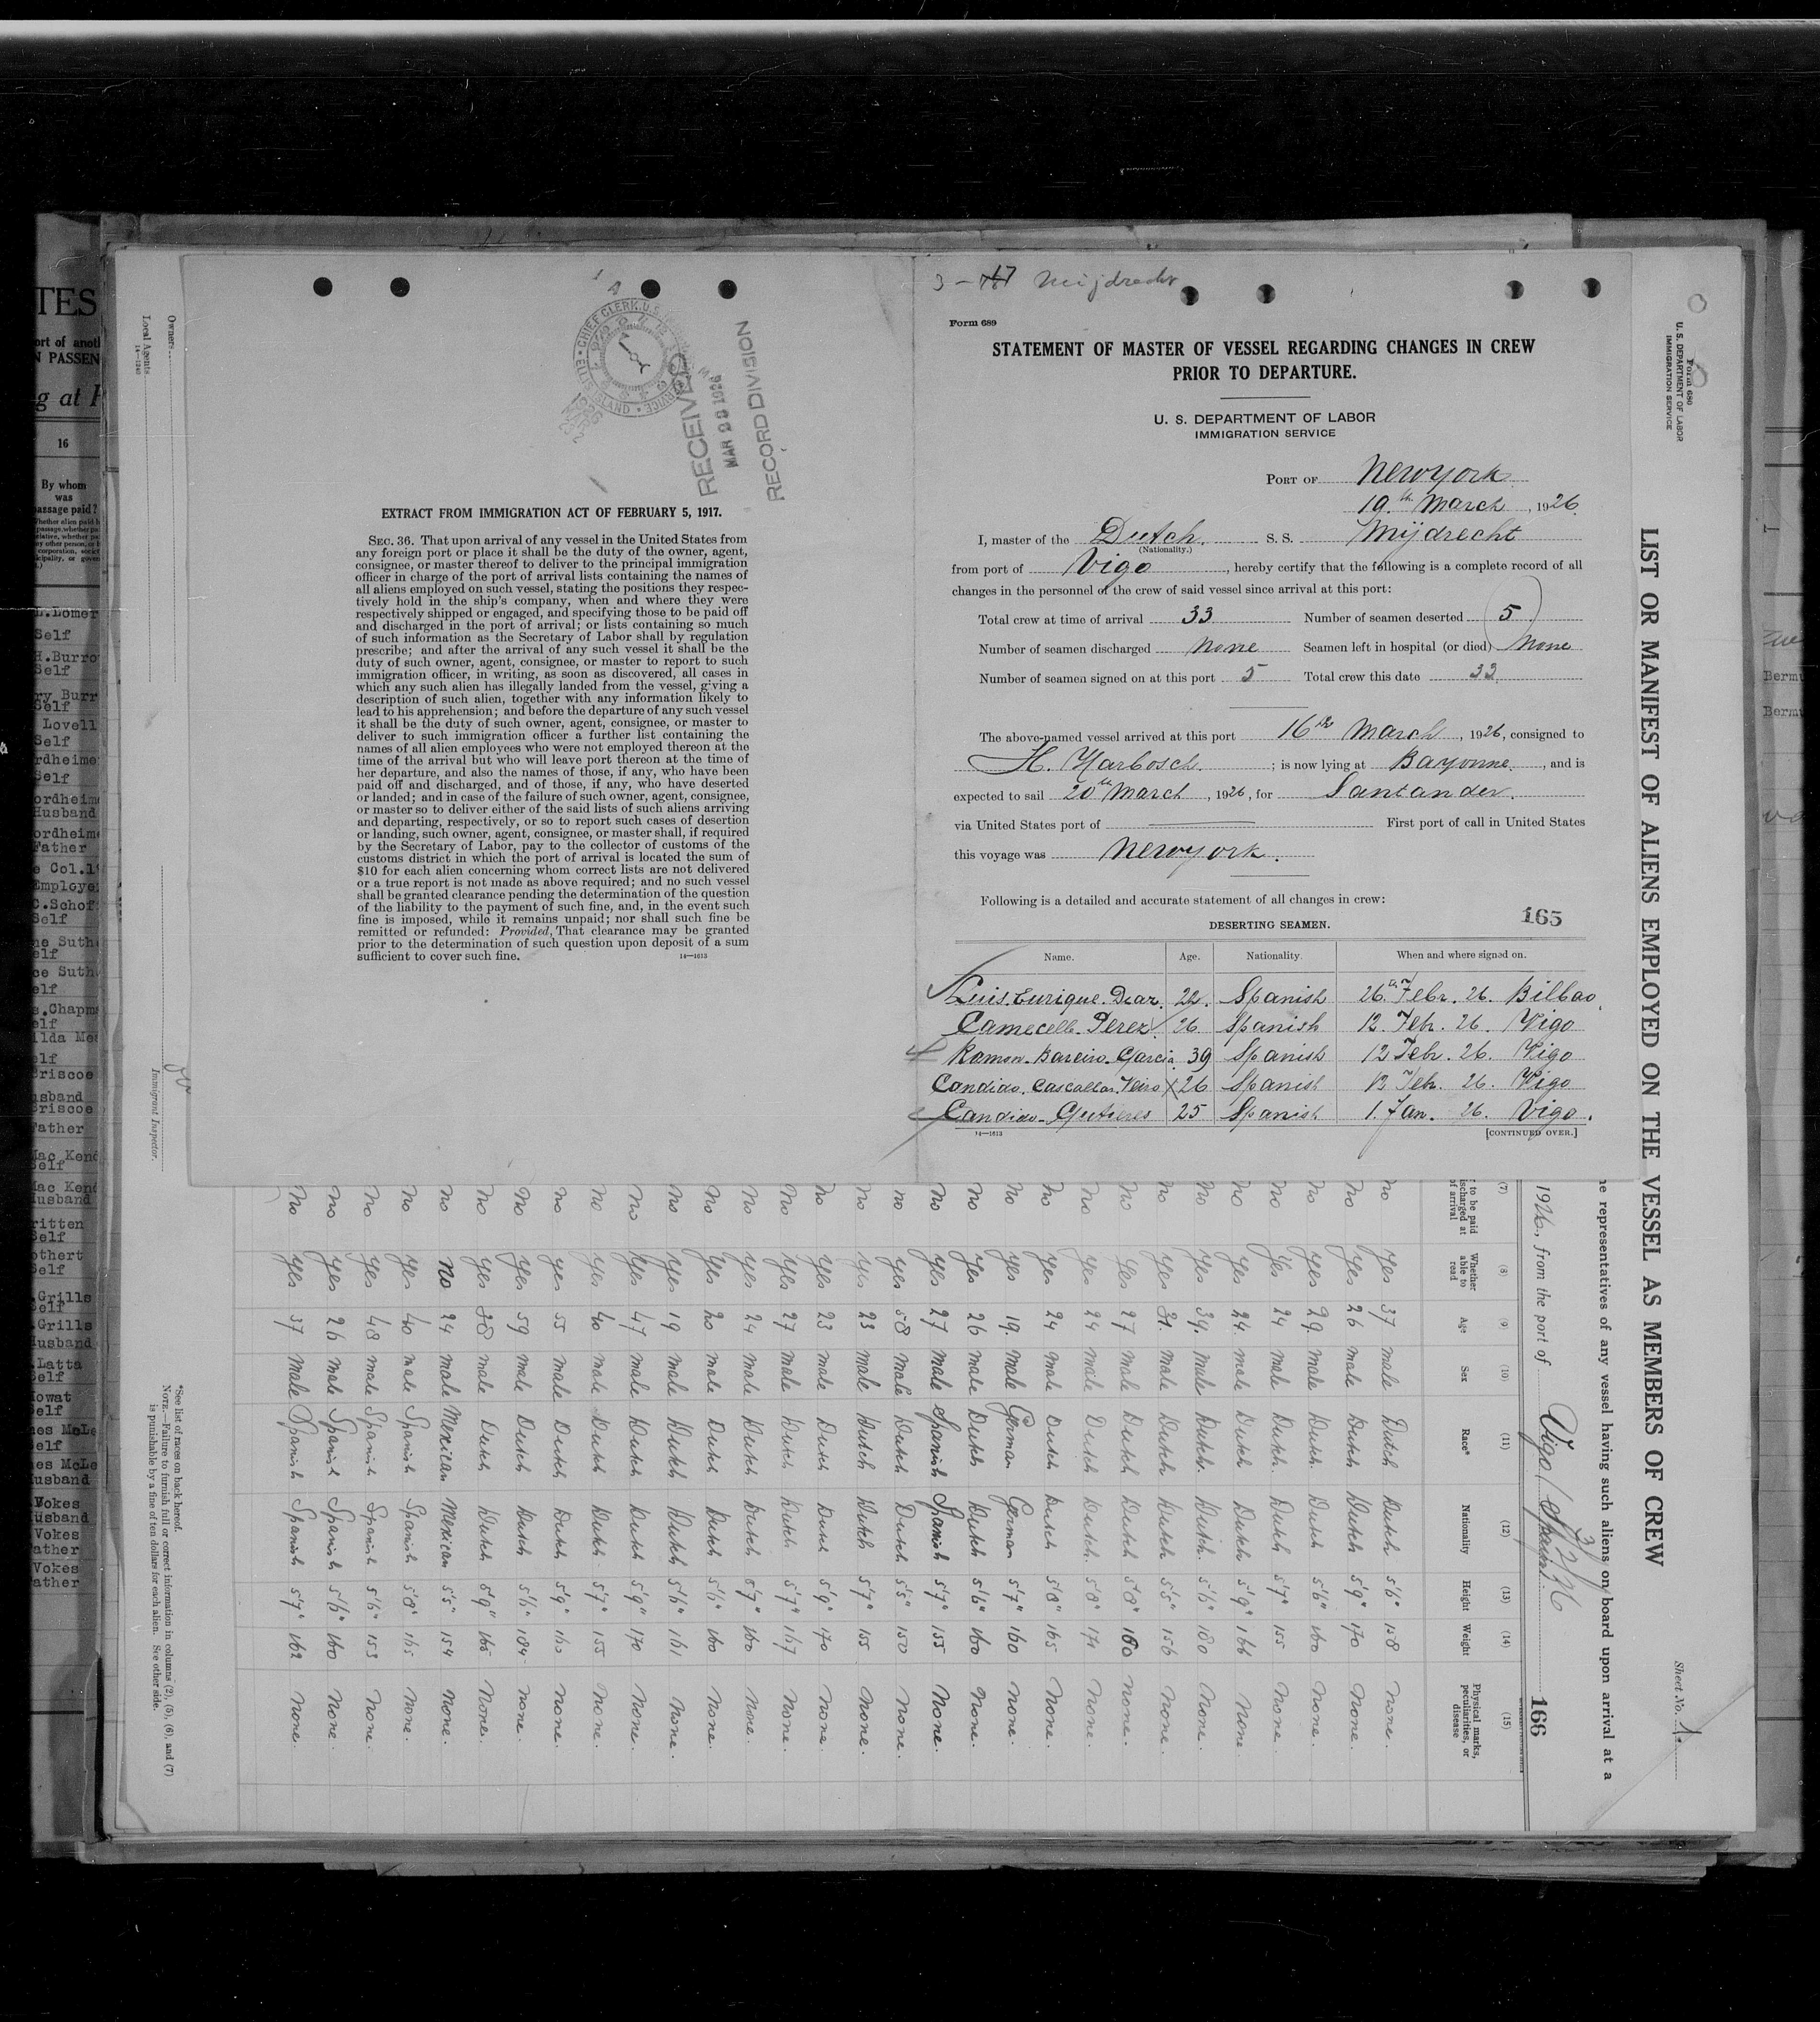 3 - 17 Mijdrecht
Form 689
STATEMENT OF MASTER OF VESSEL REGARDING CHANGES IN CREW
PRIOR TO DEPARTURE.
U. S. DEPARTMENT OF LABOR
IMMIGRATION SERVICE
PORT OF Newyork
19th March, 1926
I, master of the Dutch S. S. Mijdrecht
(Nationality.)
from port of Vigo, hereby certify that the following is a complete record of all
changes in the personnel of the crew of said vessel since arrival at this port:
Total crew at time of arrival 33 Number of seamen deserted 5
Number of seamen discharged None Seamen left in hospital (or died) None
Number of seamen signed on at this port 5 Total crew this date 33
The above-named vessel arrived at this port 16th March, 1926, consigned to
H. Harbosch ; is now lying at Bayonne, and is
expected to sail 20th March, 1926, for Santander.
via United States port of First port of call in United States
this voyage was Newyork.
Following is a detailed and accurate statement of all changes in crew:
165
DESERTING SEAMEN.
Name. Age. Nationality. When and where signed on.
Luis. Enrique. Diaz. 22. Spanish 26th Febr. 26. Bilbao.
Perez 26. Spanish 12. Febr. 26. Vigo
Ramon. Bareiro. Garcia. 39 Spanish 12 Febr. 26. Vigo
Candido. Cascallar. 26 Spanish 12 Febr. 26. Vigo
Candido. Gutieres 25 Spanish 1. Jan. 26. Vigo.
14—1613
[CONTINUED OVER.]
CHIEF CLERK, U.S.
ELLIS ISLAND
SERVICE
RECEIVED
MAR 1926
RECORD DIVISION
EXTRACT FROM IMMIGRATION ACT OF FEBRUARY 5, 1917.
SEC. 36. That upon arrival of any vessel in the United States from
any foreign port or place it shall be the duty of the owner, agent,
consignee, or master thereof to deliver to the principal immigration
officer in charge of the port of arrival lists containing the names of
all aliens employed on such vessel, stating the positions they respec-
tively hold in the ship's company, when and where they were
respectively shipped or engaged, and specifying those to be paid off
and discharged in the port of arrival; or lists containing so much
of such information as the Secretary of Labor shall by regulation
prescribe; and after the arrival of any such vessel it shall be the
duty of such owner, agent, consignee, or master to report to such
immigration officer, in writing, as soon as discovered, all cases in
which any such alien has illegally landed from the vessel, giving a
description of such alien, together with any information likely to
lead to his apprehension; and before the departure of any such vessel
it shall be the duty of such owner, agent, consignee, or master to
deliver to such immigration officer a further list containing the
names of all alien employees who were not employed thereon at the
time of the arrival but who will leave port thereon at the time of
her departure, and also the names of those, if any, who have been
paid off and discharged, and of those, if any, who have deserted
or landed; and in case of the failure of such owner, agent, consignee,
or master so to deliver either of the said lists of such aliens arriving
and departing, respectively, or so to report such cases of desertion
or landing, such owner, agent, consignee, or master shall, if required
by the Secretary of Labor, pay to the collector of customs of the
customs district in which the port of arrival is located the sum of
$10 for each alien concerning whom correct lists are not delivered
or a true report is not made as above required; and no such vessel
shall be granted clearance pending the determination of the question
of the liability to the payment of such fine, and, in the event such
fine is imposed, while it remains unpaid; nor shall such fine be
remitted or refunded: Provided, That clearance may be granted
prior to the determination of such question upon deposit of a sum
sufficient to cover such fine.
14—1613
Form 680
U. S. DEPARTMENT OF LABOR
IMMIGRATION SERVICE
Sheet No. 1.
LIST OR MANIFEST OF ALIENS EMPLOYED ON THE VESSEL AS MEMBERS OF CREW
representatives of any vessel having such aliens on board upon arrival at a
1926, from the port of Vigo / Spain
166
(7) (8) (9) (10) (11) (12) (13) (14) (15)
to be paid Whether able to read Age Sex Race* Nationality Height Weight Physical marks, peculiarities, or disease
no yes 37 male Dutch Dutch 5'6" 158 none.
no yes 26 male Dutch Dutch 5'9" 170 none.
no yes 29. male Dutch. Dutch 5'6" 160 none.
no yes 24 male Dutch. Dutch 5'7" 155 none.
no yes 24. male Dutch Dutch 5'9" 166 none
no yes 39. male Dutch. Dutch. 5'6" 180 none.
no yes 21. male Dutch Dutch 5'5" 156 none.
no yes 27 male Dutch Dutch 5'8" 160 none.
no yes 24 male Dutch Dutch. 5'8" 171 none
no yes 24 male Dutch Dutch 5'8" 165 none.
no yes 19. male German German 5'7" 160 none.
no yes 26 male Dutch Dutch 5'6" 160 none.
no yes 27 male Spanish Spanish 5'7" 155 none.
no yes 58 male Dutch Dutch 5'5" 150 none.
no yes 23 male Dutch Dutch 5'7" 155 none.
no yes 23 male Dutch Dutch 5'9" 170 none.
no yes 27 male Dutch Dutch 5'7" 167 none.
no yes 24 male Dutch Dutch 5'7" 160 none.
no yes 20 male Dutch Dutch 5'6" 160 none.
no yes 19 male Dutch Dutch 5'6" 161 none.
no yes 47 male Dutch Dutch 5'9" 170 none.
no yes 40 male Dutch Dutch 5'7" 155 none.
no yes 55 male Dutch Dutch 5'9" none.
no yes 59 male Dutch Dutch 5'6" 184 none.
no yes 38 male Dutch Dutch 5'9" 165 none.
no no 24 male Mexican Mexican 5'5" 154 none.
no yes 40 male Spanish Spanish 5'8" 165 none.
no yes 48 male Spanish Spanish 5'6" 153 none
no yes 26 male Spanish Spanish 5'6" 160 none.
no yes 37 male Spanish Spanish 5'7" 162 none.
*See list of races on back hereof.
NOTE.—Failure to furnish full or correct information in columns (2), (5), (6), and (7)
is punishable by a fine of ten dollars for each alien. See other side.
Owners
Local Agents
14—1240
Immigrant Inspector.
TES
16
By whom
was
passage paid?
Self
Self
Self
Lovell
Self
Self
Husband
Father
Self
Self
Self
Self
Briscoe
Husband
Briscoe
Father
Self
Husband
Self
Self
Grills
Self
Grills
Husband
Latta
Self
Self
Self
Husband
Vokes
Husband
Vokes
Father
Vokes
Father